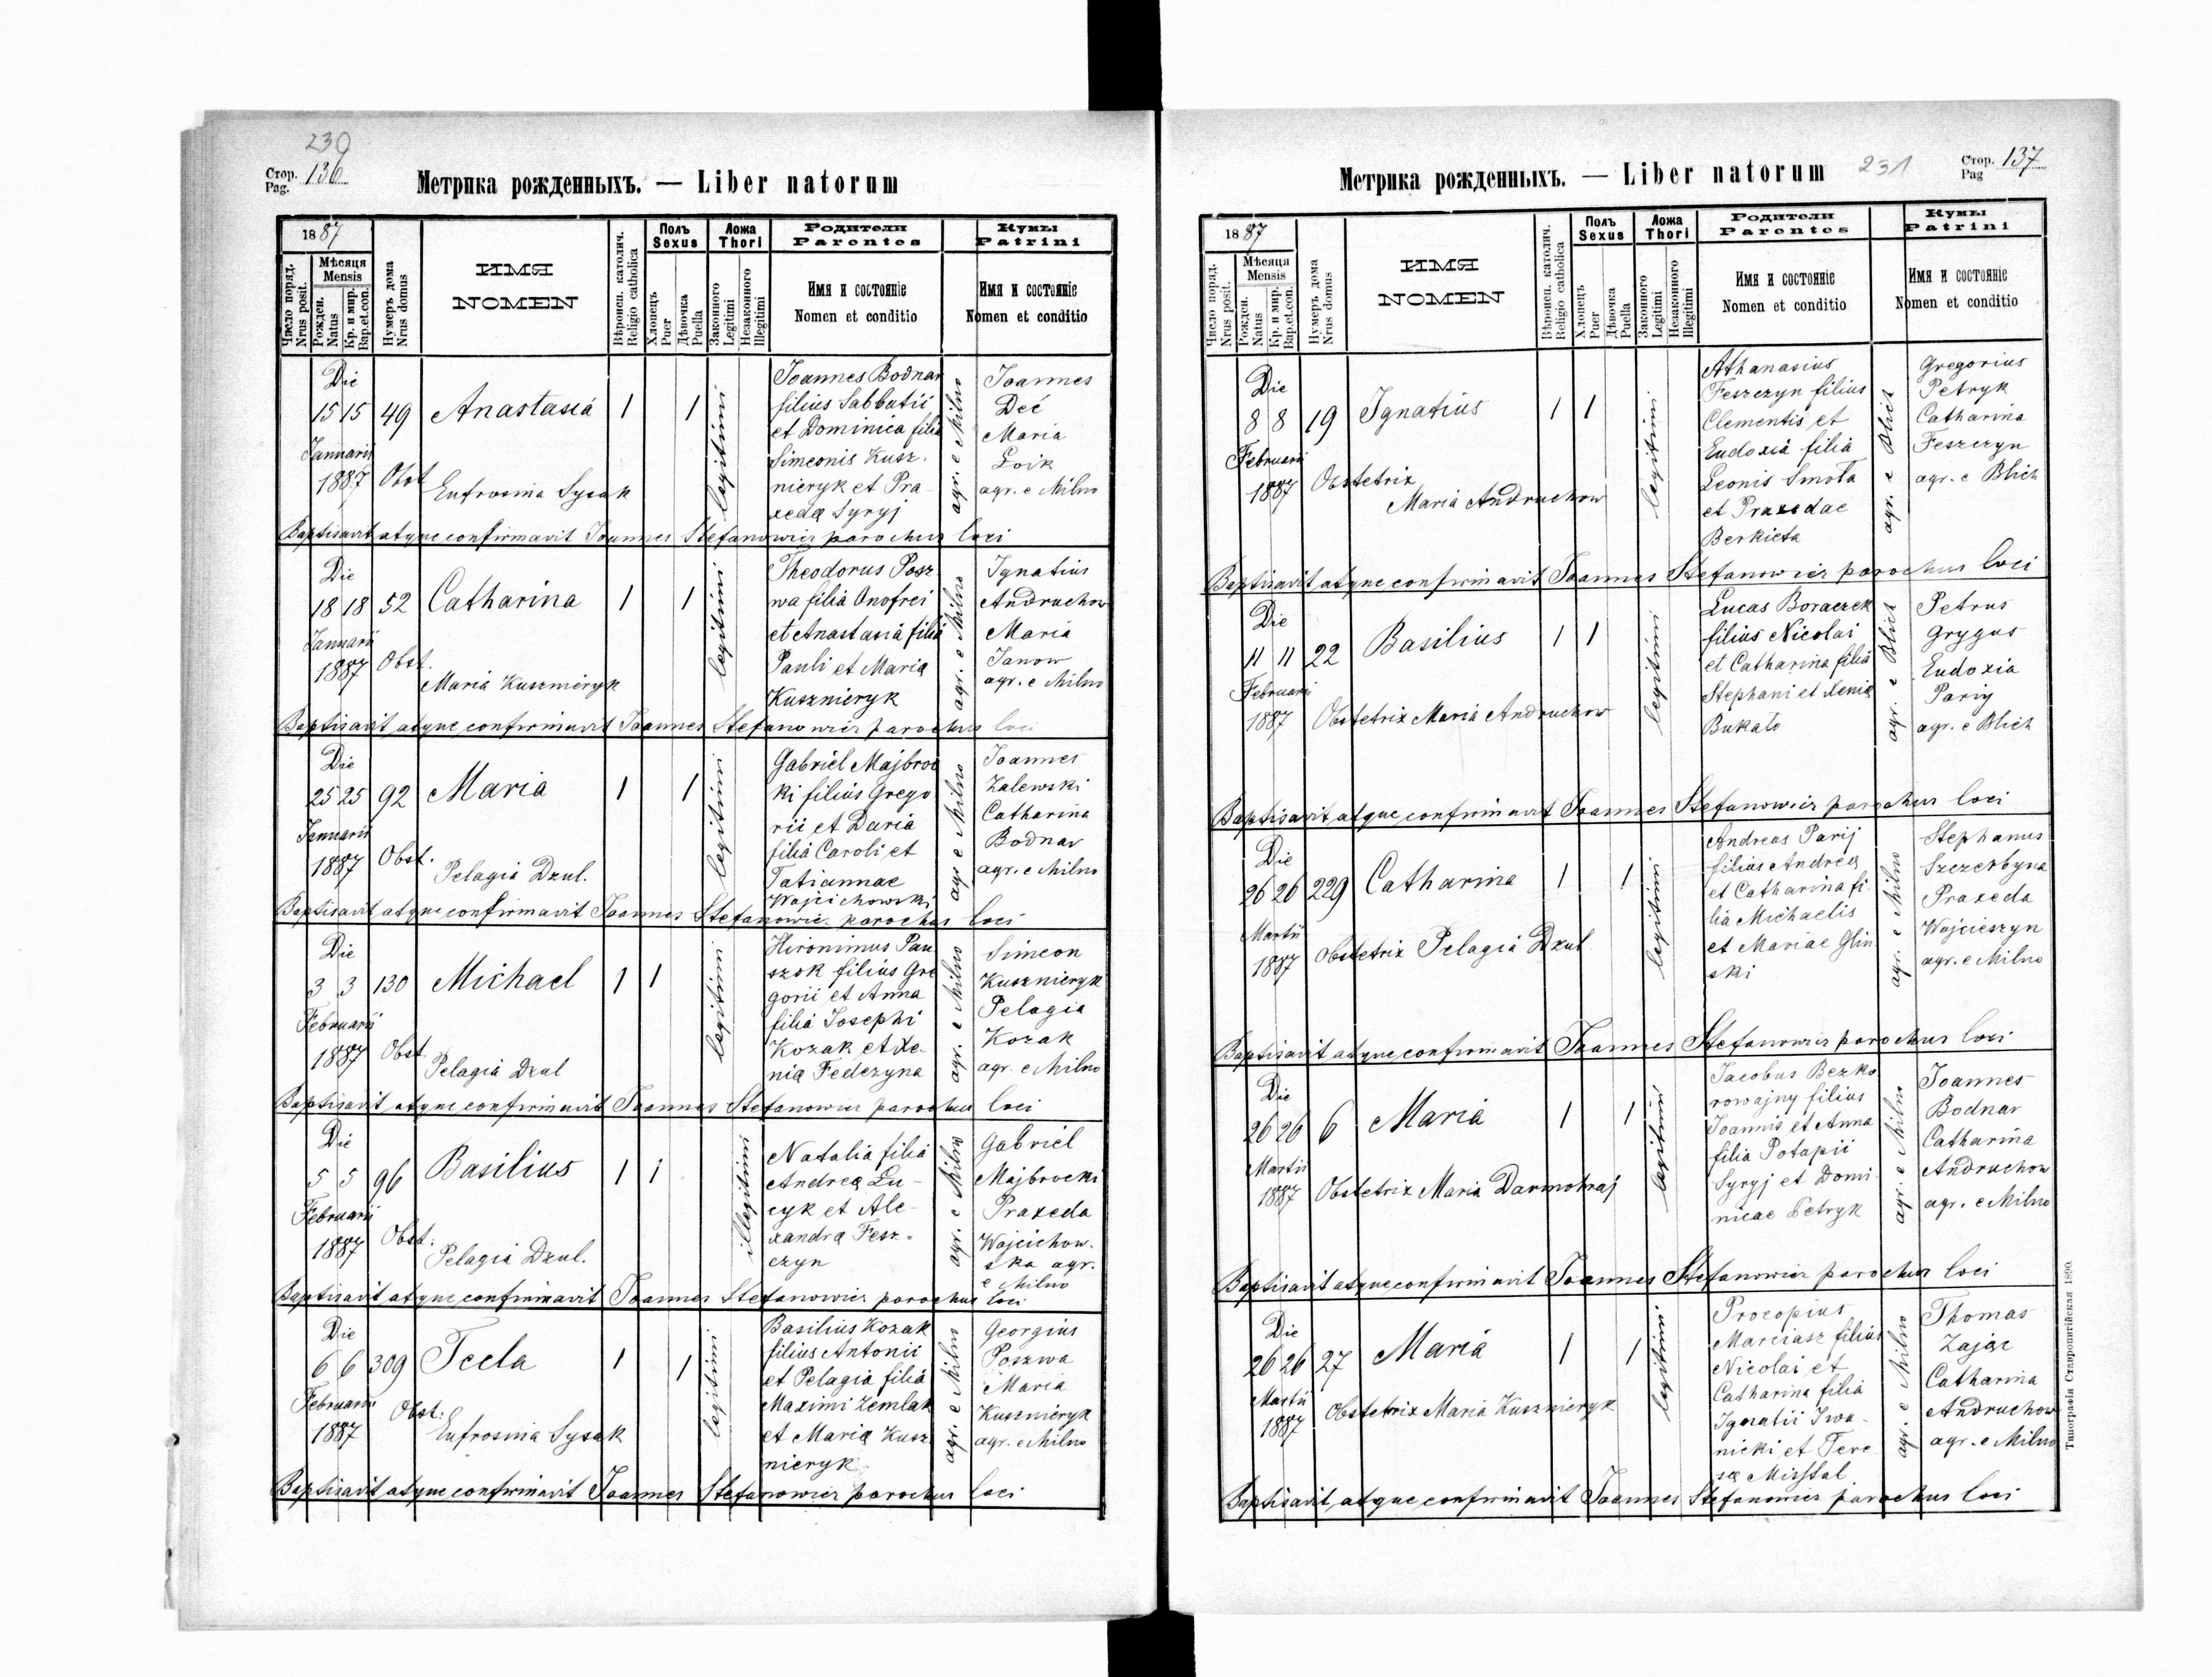 230
Стор. Pag. 136
Метрика рожденныхъ. — Liber natorum
1887
Число поряд. Nrus posit.
Мѣсяця Mensis
Рожден. Natus
Кр. и мир. Bap.et.con.
Нумеръ дома Nrus domus
ИМЯ
NOMEN
Вѣроисп. католич. Religio catholica
Полъ Sexus
Хлопецъ Puer
Дѣвочка Puella
Ложа Thori
Законного Legitimi
Незаконного Illegitimi
Родители Parentes
Имя и состояніе
Nomen et conditio
Кумы Patrini
Имя и состояніе
Nomen et conditio
Die
15 15 49 Anastasia 1 1
Januarii
1887 Obst
Eufrosina Sysak
legitimi
Joannes Bodnar
filius Sabbatii
et Dominica filia
Simeonis Kusz-
nieryk et Pra-
xeda Syryj
agr. e Milno
Joannes
Deć
Maria
Loik
agr. e Milno
Baptisavit atque confirmavit Joannes Stefanowicz parochus loci
Die
18 18 52 Catharina 1 1
Januarii
1887 Obst.
Maria Kusznieryk
legitimi
Theodorus Posz
wa filia Onofrei
et Anastasia filia
Pauli et Maria
Kusznieryk
agr. e Milno
Ignatius
Andruchow
Maria
Janow
agr. e Milno
Baptisavit atque confirmavit Joannes Stefanowicz parochus loci
Die
25 25 92 Maria 1 1
Januarii
1887 Obst.
Pelagia Dzul.
legitimi
Gabriel Majbroc
ki filius Grego
rii et Daria
filia Caroli et
Tatiannae
Wojcichowski
agr e Milno
Joannes
Zalewski
Catharina
Bodnar
agr. e Milno
Baptisavit atque confirmavit Joannes Stefanowic. parochus loci
Die
3 3 130 Michael 1 1
Februarii
1887 Obst
Pelagia Dzul
legitimi
Hironimus Pau
szok filius Gre
gorii et Anna
filia Josephi
Kozak et Xe-
nia Fedczyna
agr. e Milno
Simeon
Kusznieryk
Pelagia
Kozak
agr. e Milno
Baptisavit atque confirmavit Joannes Stefanowicz parochus loci
Die
5 5 96 Basilius 1 1
Februarii
1887 Obst.
Pelagia Dzul.
illegitimi
Natalia filia
Andrea Lu-
cyk et Ale-
xandra Fesz-
czyn
agr. e Milno
Gabriel
Majbrocki
Praxeda
Wojcichow-
ska agr.
e Milno
Baptisavit atque confirmavit Joannes Stefanowicz parochus loci
Die
6 6 309 Tecla 1 1
Februarii
1887 Obst:
Eufrosina Sysak
legitimi
Basilius Kozak
filius Antonii
et Pelagia filia
Maximi Zemlak
et Maria Kusz
nieryk
agr. e Milno
Georgius
Poszwa
Maria
Kusznieryk
agr. e Milno
Baptisavit atque confirmavit Joannes Stefanowicz parochus loci
Метрика рожденныхъ. — Liber natorum
231
Стор. Pag 137
1887
Число поряд. Nrus posit.
Мѣсяця Mensis
Рожден. Natus
Кр. и мир. Bap.et.con.
Нумеръ дома Nrus domus
ИМЯ
NOMEN
Вѣроисп. католич. Religio catholica
Полъ Sexus
Хлопецъ Puer
Дѣвочка Puella
Ложа Thori
Законного Legitimi
Незаконного Illegitimi
Родители Parentes
Имя и состояніе
Nomen et conditio
Кумы Patrini
Имя и состояніе
Nomen et conditio
Die
8 8 19 Ignatius 1 1
Februarii
1887 Obstetrix
Maria Andruchow
legitimi
Athanasius
Feszczyn filius
Clementis et
Eudoxia filia
Leonis Smola
et Praxedae
Berkieta
agr. e Blich
Gregorius
Petryk
Catharina
Feszczyn
agr. e Blich
Baptisavit atque confirmavit Joannes Stefanowicz parochus loci
Die
11 11 22 Basilius 1 1
Februarii
1887 Obstetrix Maria Andruchow
legitimi
Lucas Boraczek
filius Nicolai
et Catharina filia
Stephani et Xenia
Bukato
agr. e Blich
Petrus
Grygus
Eudoxia
Pariy
agr. e Blich
Baptisavit atque confirmavit Joannes Stefanowicz parochus loci
Die
26 26 229 Catharina 1 1
Martii
1887 Obstetrix Pelagia Dzul
legitimi
Andreas Parij
filius Andrea
et Catharina fi-
lia Michaelis
et Mariae Glin
ski
agr. e Milno
Stephanus
Szczerbyna
Praxeda
Wojcieszyn
agr. e Milno
Baptisavit atque confirmavit Joannes Stefanowicz parochus loci
Die
26 26 6 Maria 1 1
Martii
1887 Obstetrix Maria Darmohraj
legitimi
Jacobus Bezko
rowajny filius
Joannis et Anna
filia Potapii
Syryj et Domi-
nicae Petryk
agr. e Milno
Joannes
Bodnar
Catharina
Andruchow
agr. e Milno
Baptisavit atque confirmavit Joannes Stefanowicz parochus loci
Die
26 26 27 Maria 1 1
Martii
1887 Obstetrix Maria Kusznieryk
legitimi
Procopius
Marciasz filius
Nicolai et
Catharina filia
Ignatii Iwa-
nicki et Tere
sa Misztal
agr. e Milno
Thomas
Zając
Catharina
Andruchow
agr. e Milno
Baptisavit atque confirmavit Joannes Stefanowicz parochus loci
Типографія Ставропигійская 1890.